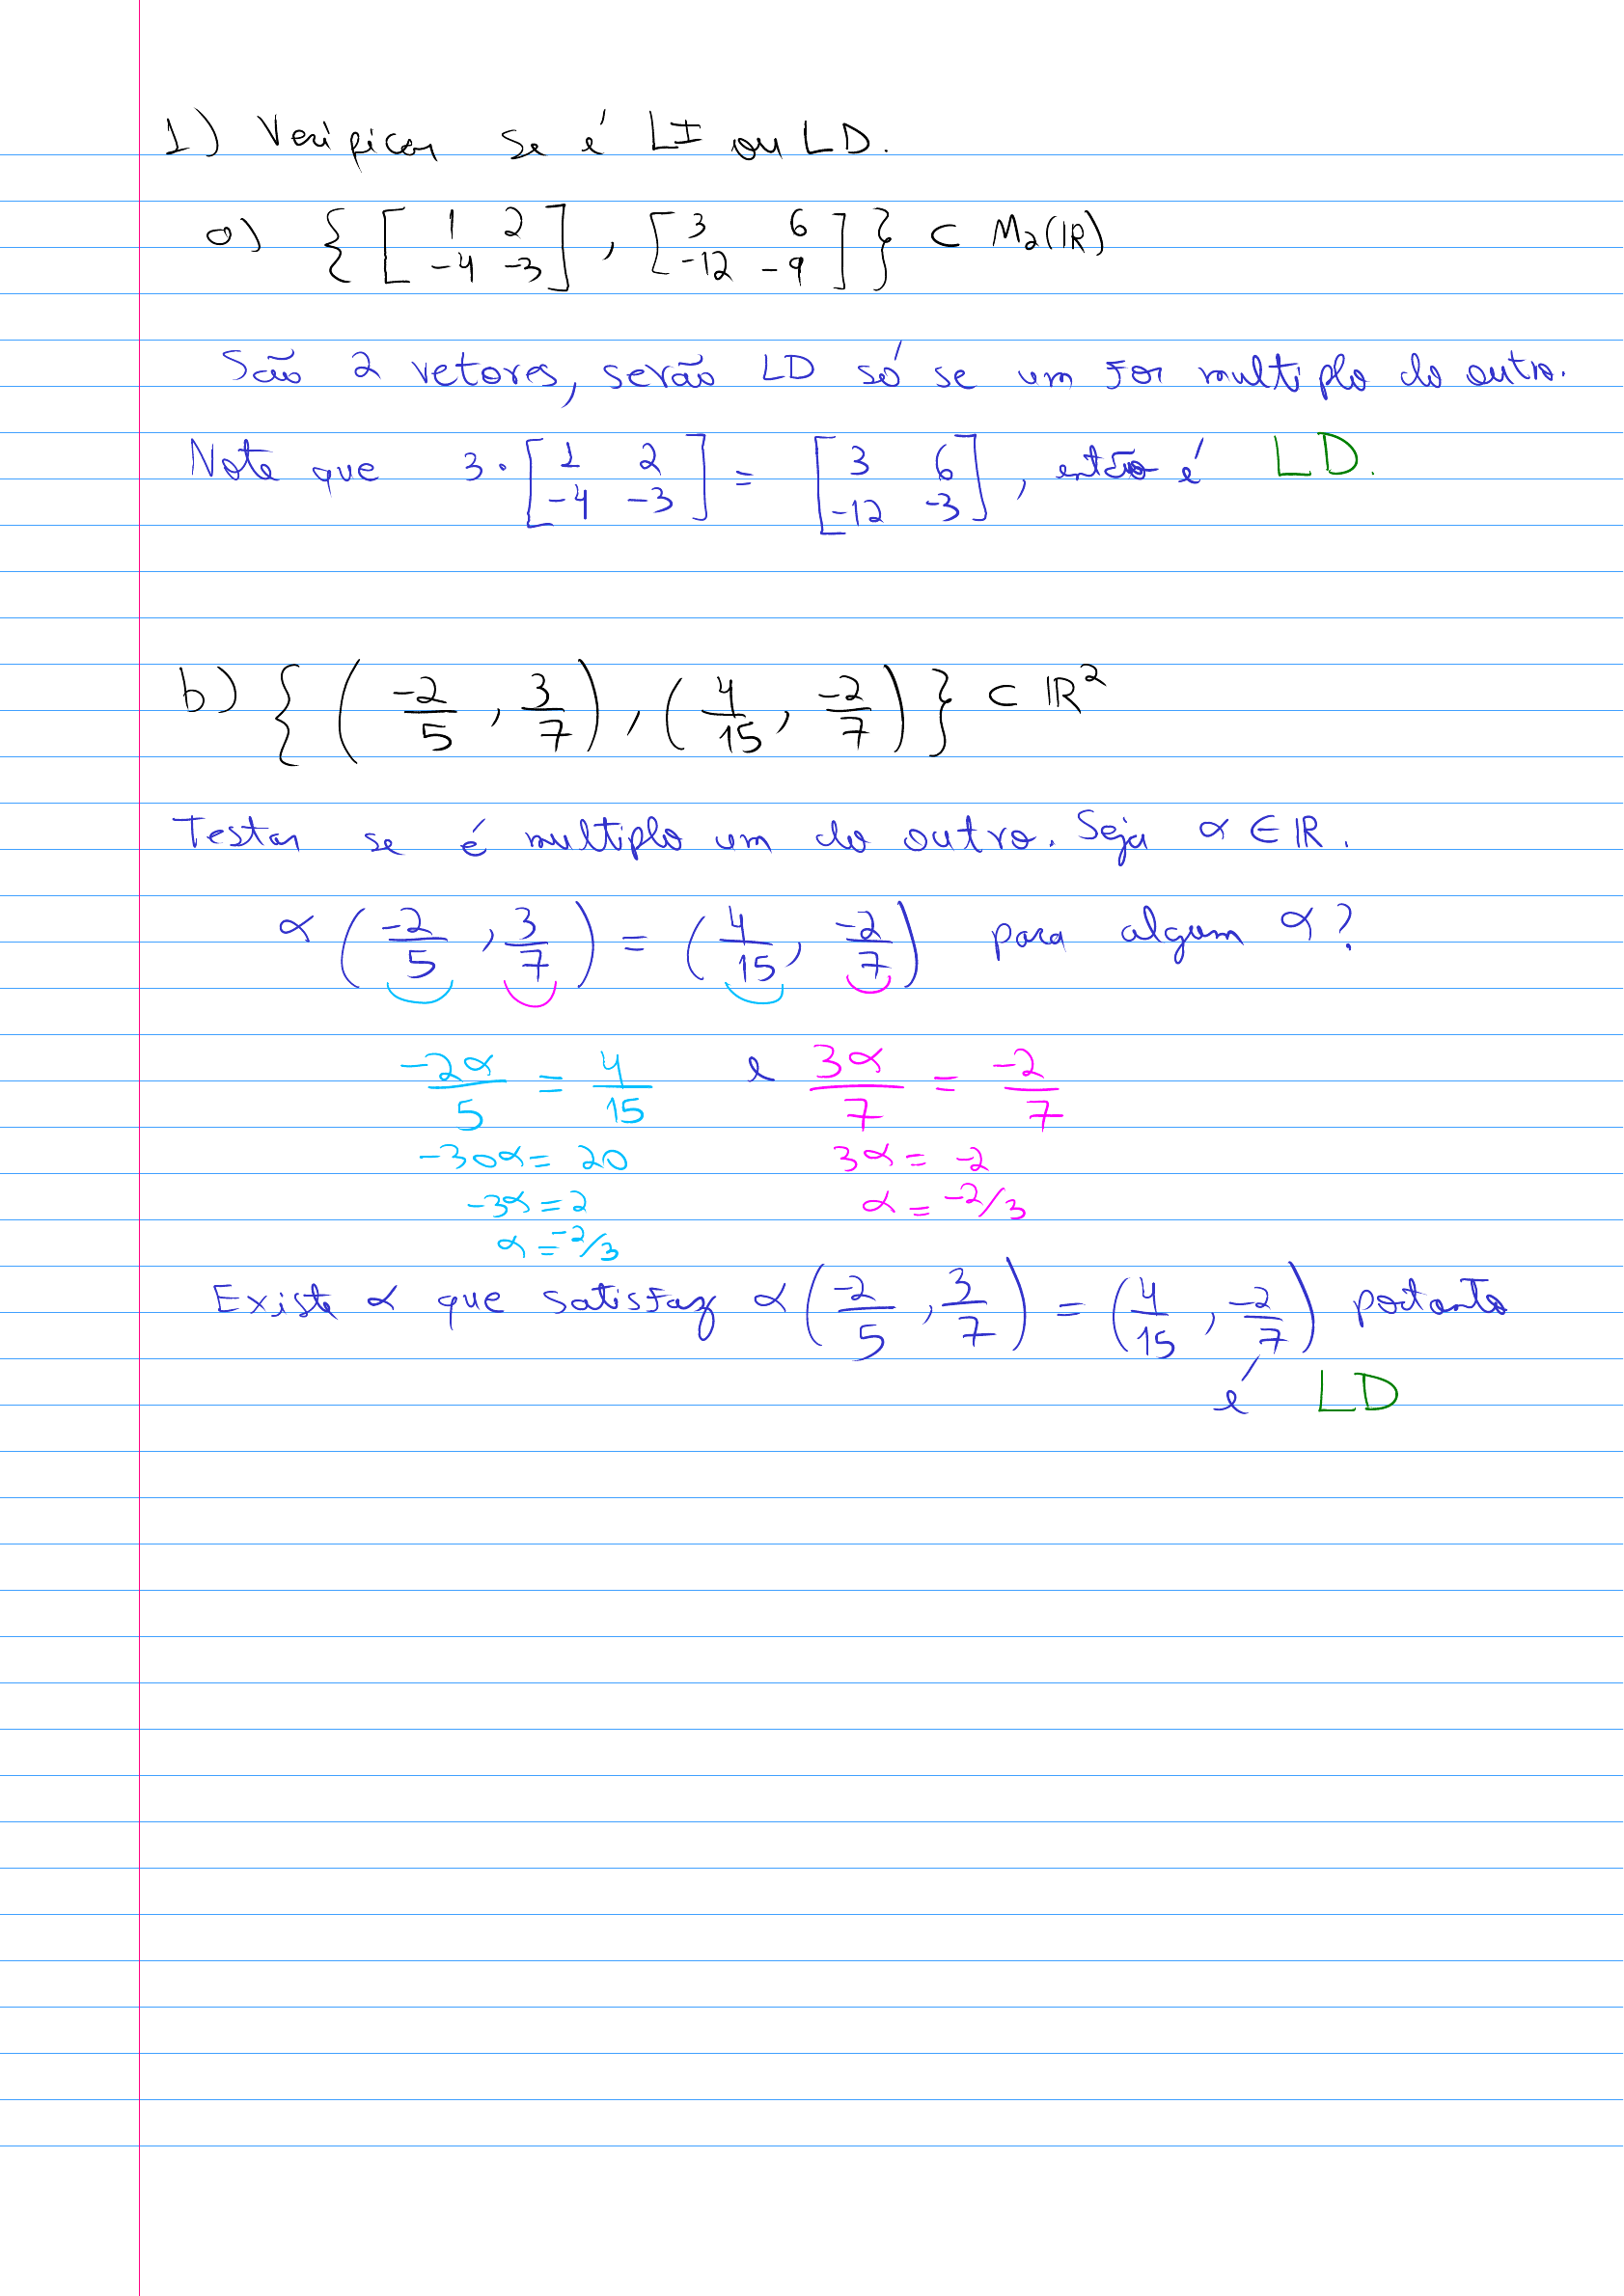 1) Verificar se é LI ou LD.
a) { [ 1 2 ; -4 -3 ] , [ 3 6 ; -12 -9 ] } ⊂ M₂(IR)
São 2 vetores, serão LD só se um for multiplo do outro.
Note que 3·[ 1 2 ; -4 -3 ] = [ 3 6 ; -12 -3 ], então é LD.
b) { ( -2/5 , 3/7 ) , ( 4/15 , -2/7 ) } ⊂ IR²
Testar se é multiplo um do outro. Seja α ∈ IR.
α ( -2/5 , 3/7 ) = ( 4/15 , -2/7 ) para algum α?
-2α/5 = 4/15 e 3α/7 = -2/7
-30α = 20 3α = -2
-3α = 2 α = -2/3
α = -2/3
Existe α que satisfaz α ( -2/5 , 3/7 ) = ( 4/15 , -2/7 ) portanto
é LD